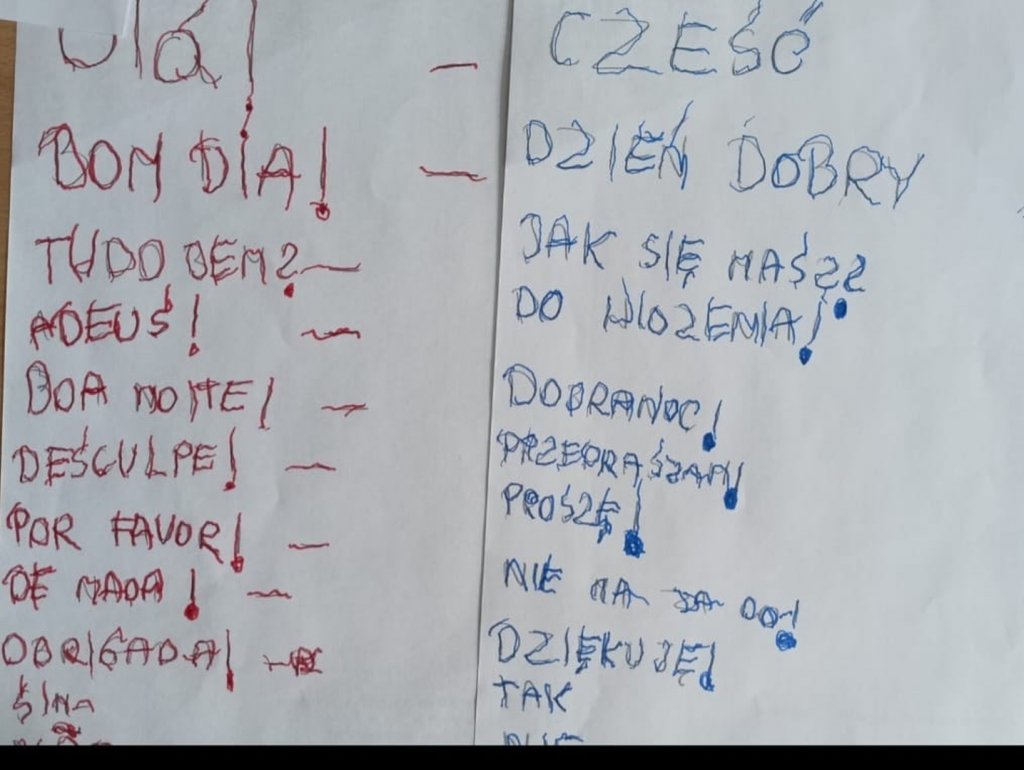 OLÁ! — CZEŚĆ
BOM DIA! — DZIEŃ DOBRY
TUDO BEM? — JAK SIĘ MASZ?
ADEUS! — DO WIDZENIA!
BOA NOITE! — DOBRANOC!
DESCULPE! — PRZEPRASZAM!
POR FAVOR! — PROSZĘ!
DE NADA! — NIE MA ZA CO!
OBRIGADA! — DZIĘKUJĘ!
SIM TAK
NIE